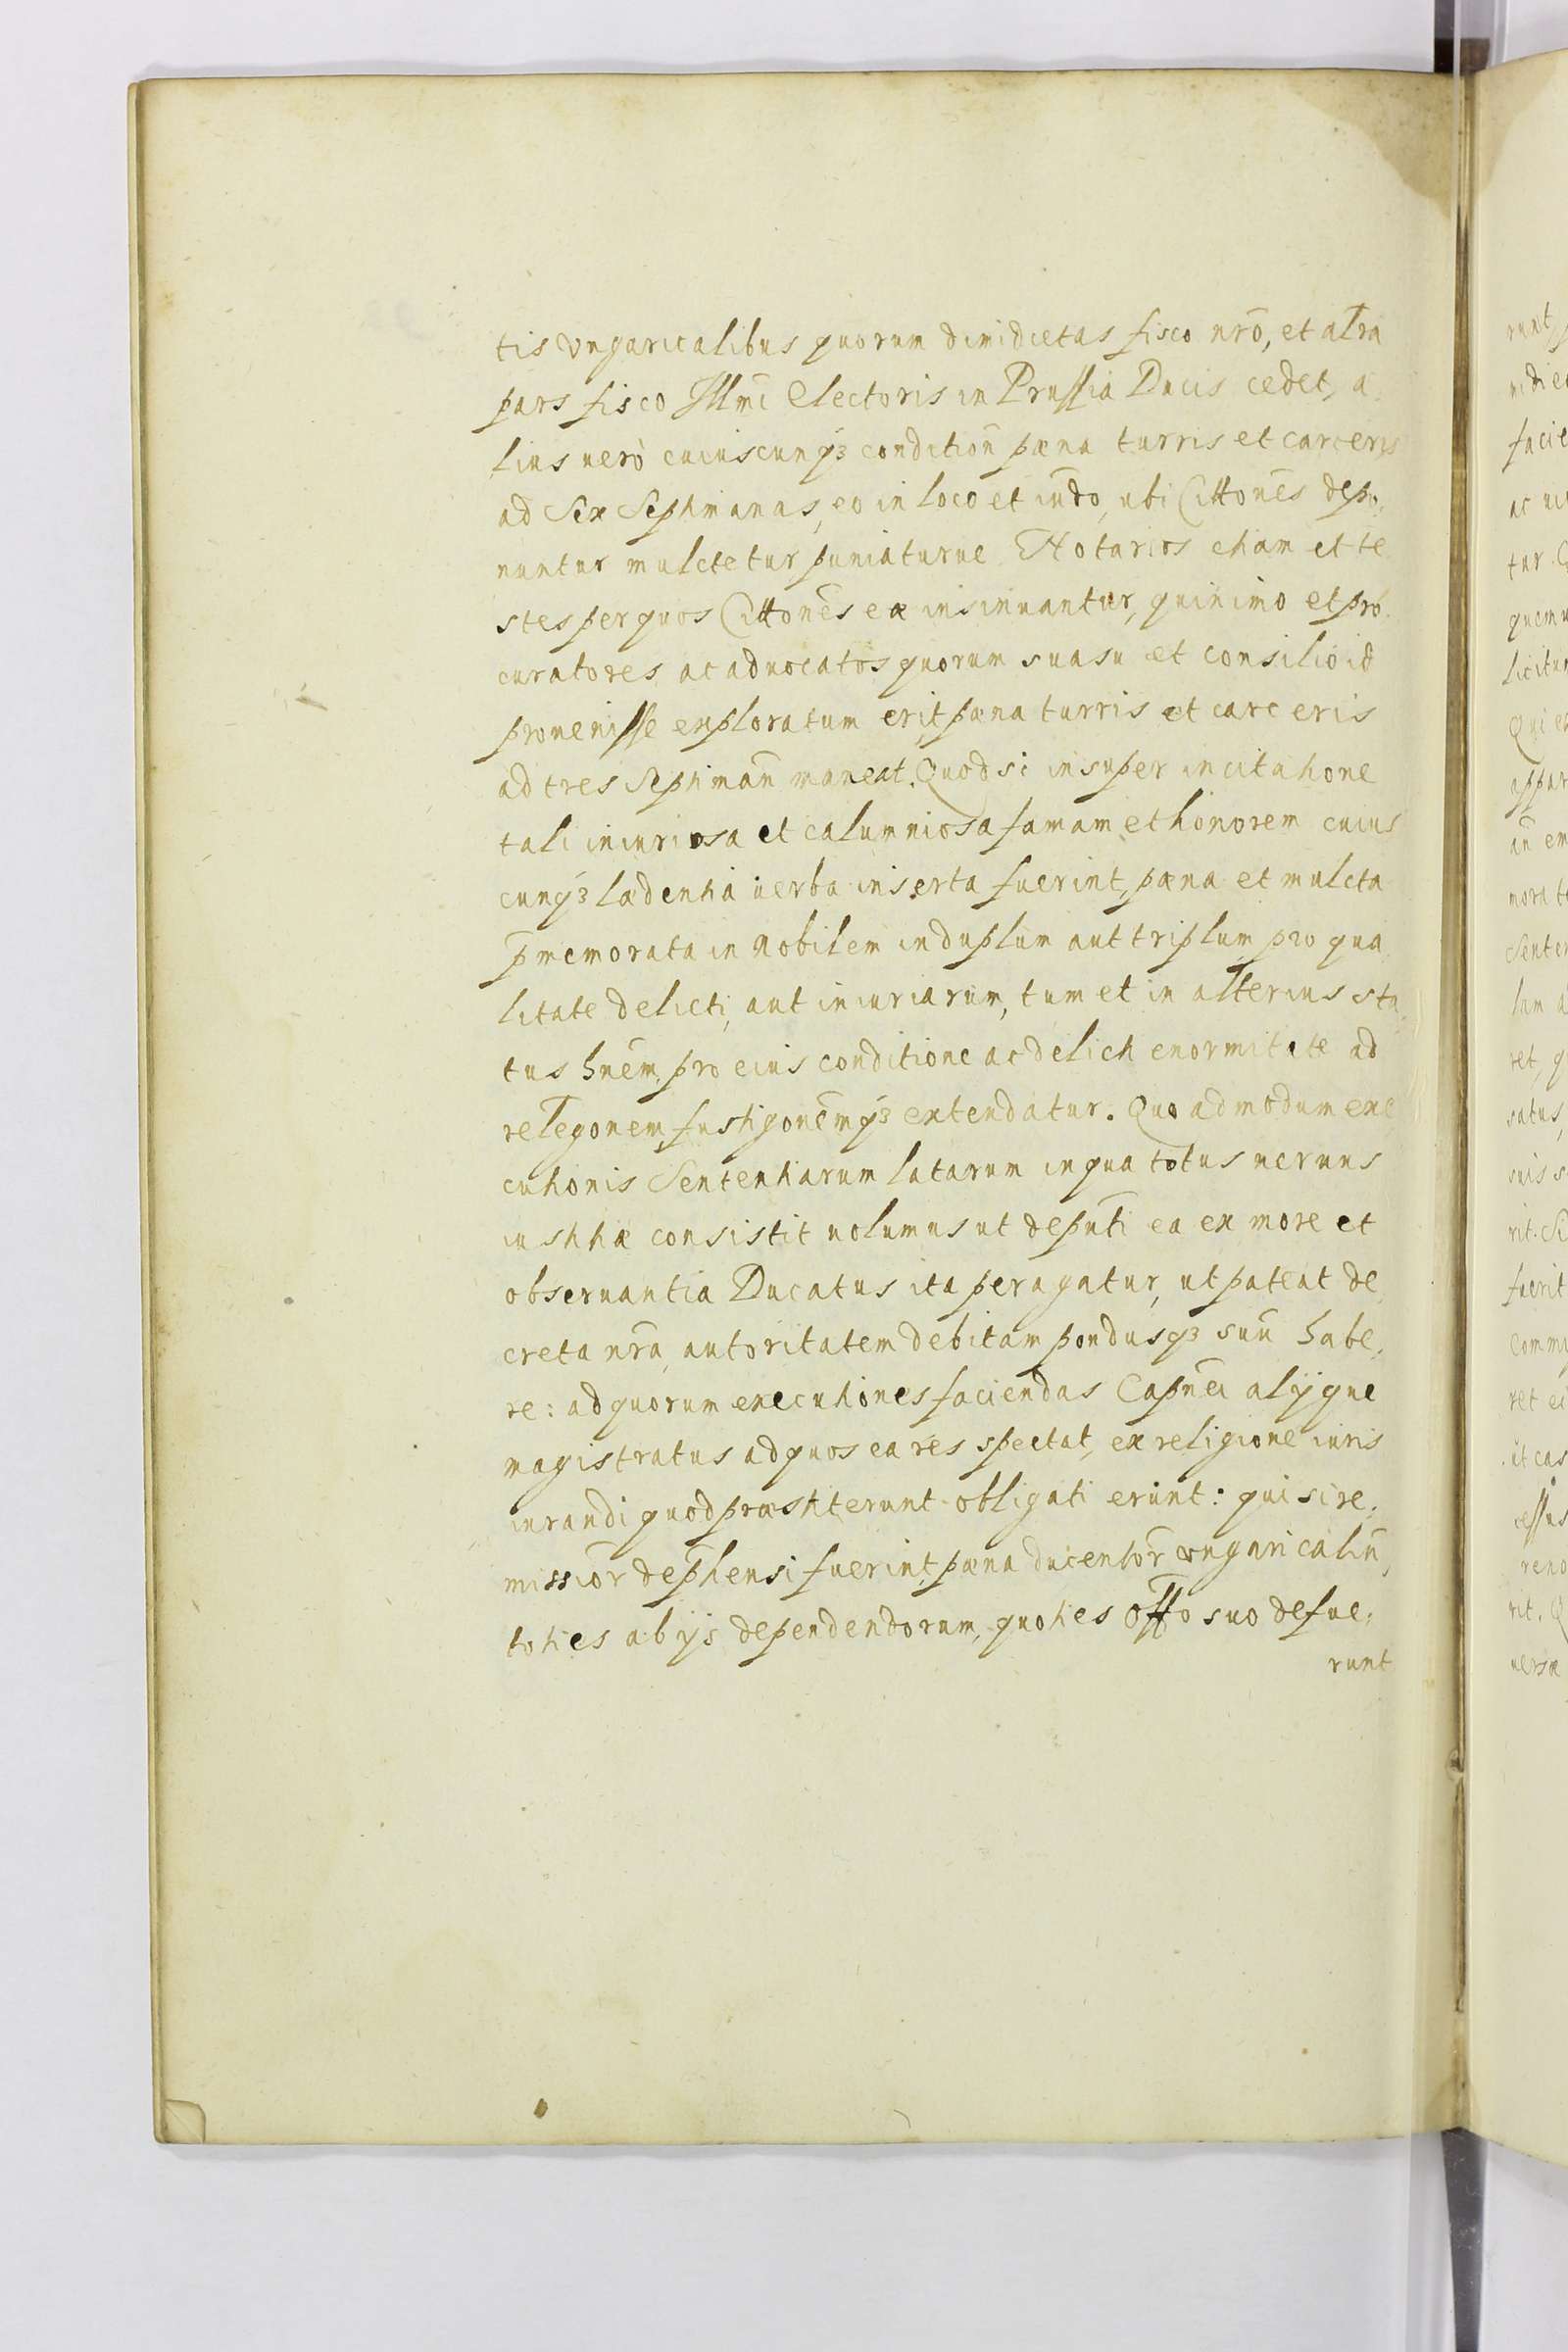 tis vngaricalibus quorum dimidietas fisco nrō, et altra
pars fisco Illmī Electoris in Prussia Ducis cedet, a,
lius uerò cuiuscunqȝ conditioñ pæna turris et carceris
ad Sex Septimanas, eo in loco et iudo, ubi Cittonēs depo,
nuntur mulctetur puniaturue. Notarios etiam et te
stes per quos Cittonēs eæ insinuantur, quinimo et pro
curatores ac aduocatos quorum suasu et consilio id
prouenisse exploratum erit, pæna turris et carceris
ad tres Septimañ maneat. Quod si insuper in citatione
tali iniuriosa et calumniosa famam et honorem cuius
cunqȝ lædentia uerba inserta fuerint, pæna et mulcta
p̄memorata in nobilem in duplum aut triplum pro qua
litate delicti, aut iniuriarum, tum et in alterius sta,
tus hnēm, pro eius conditione ac delicti enormitate ad
relegonem, fustigonēmqȝ extendatur. Quo ad modum exe
cutionis Sententiarum latarum in qua totus neruus
iustitiæ consistit uolumus ut depūti ea ex more et
obseruantia Ducatus ita peragatur, ut pateat de
creta nrā, autoritatem debitam pondusqȝ suū habe,
re: ad quorum executiones faciendas Capnēi alijque
magistratus ad quos ea res spectat, ex religione iuris
iurandi quod præstiterunt obligati erunt: qui si re,
missior̄ dep̄hensi fuerint, pæna ducentor̄ vngaricaliū,
toties ab ijs dependendorum, quoties offo suo defue,
runt